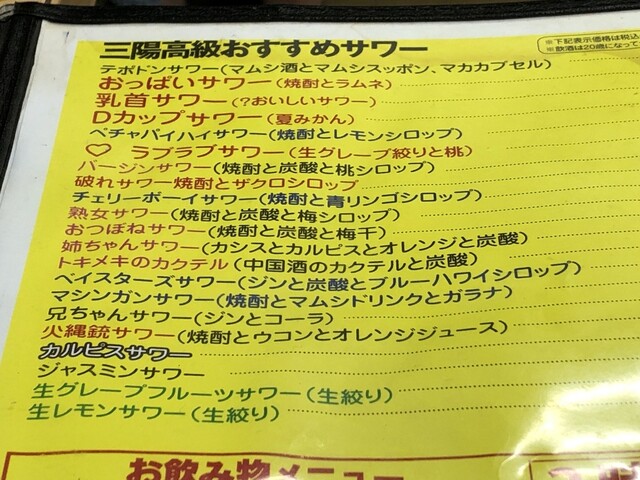 三陽高級おすすめサワー
※下記表示価格は税込
※飲酒は20歳になって
テポドンサワー(マムシ酒とマムシスッポン、マカカプセル)
おっぱいサワー(焼酎とラムネ)
乳首サワー(?おいしいサワー)
Dカップサワー(夏みかん)
ペチャパイハイサワー(焼酎とレモンシロップ)
♡ ラブラブサワー(生グレープ絞りと桃)
バージンサワー(焼酎と炭酸と桃シロップ)
破れサワー焼酎とザクロシロップ
チェリーボーイサワー(焼酎と青リンゴシロップ)
熟女サワー(焼酎と炭酸と梅シロップ)
おつぼねサワー(焼酎と炭酸と梅干)
姉ちゃんサワー(カシスとカルピスとオレンジと炭酸)
トキメキのカクテル(中国酒のカクテルと炭酸)
ベイスターズサワー(ジンと炭酸とブルーハワイシロップ)
マシンガンサワー(焼酎とマムシドリンクとガラナ)
兄ちゃんサワー(ジンとコーラ)
火縄銃サワー(焼酎とウコンとオレンジジュース)
カルピスサワー
ジャスミンサワー
生グレープフルーツサワー(生絞り)
生レモンサワー(生絞り)
お飲み物メニュー